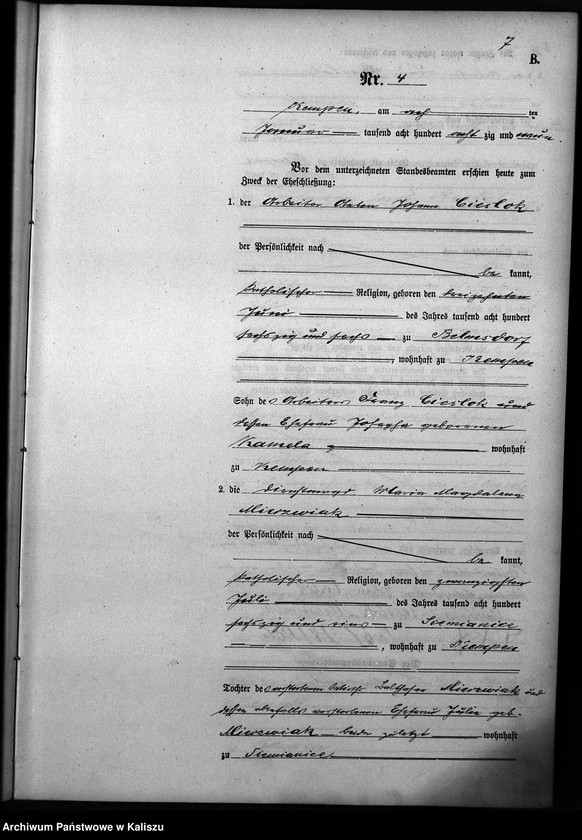 7
B.
Nr. 4
Kempen, am acht ten
Januar tausend acht hundert acht zig und neun.
Vor dem unterzeichneten Standesbeamten erschien heute zum
Zweck der Eheschließung:
1. der Arbeiter Anton Johann Cieslok
der Persönlichkeit nach
be kannt,
katholischer Religion, geboren den dreizehnten
Juni des Jahres tausend acht hundert
sechszig und sechs zu
, wohnhaft zu Kempen
Sohn des Arbeiters Franz Cieslok und
dessen Ehefrau Josepha geborenen
Kameda wohnhaft
zu Kempen
2. die Dienstmagd Maria Magdalena
Mierzwiak
der Persönlichkeit nach
be kannt,
katholischer Religion, geboren den zwanzigsten
Juli des Jahres tausend acht hundert
sechszig und eins zu Siemianice
, wohnhaft zu Kempen
Tochter des verstorbenen Balthasar Mierzwiak und
dessen ebenfalls verstorbenen Ehefrau Julia geb.
Mierzwiak beide zuletzt wohnhaft
zu Siemianice.
Archiwum Państwowe w Kaliszu